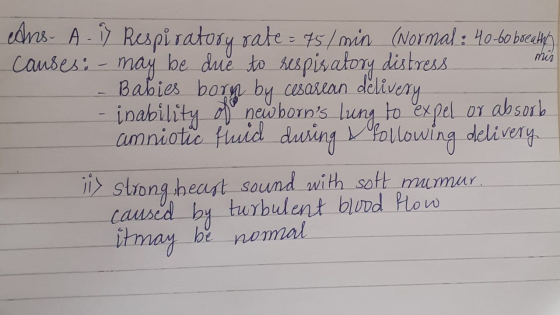 Ans- A - i) Respiratory rate = 75/min (Normal: 40-60 breath/min)
Causes: - may be due to respiratory distress
- Babies born by cesarean delivery
- inability of newborn's lung to expel or absorb
amniotic fluid during & following delivery.
ii) strong heart sound with soft murmur.
caused by turbulent blood flow
it may be normal